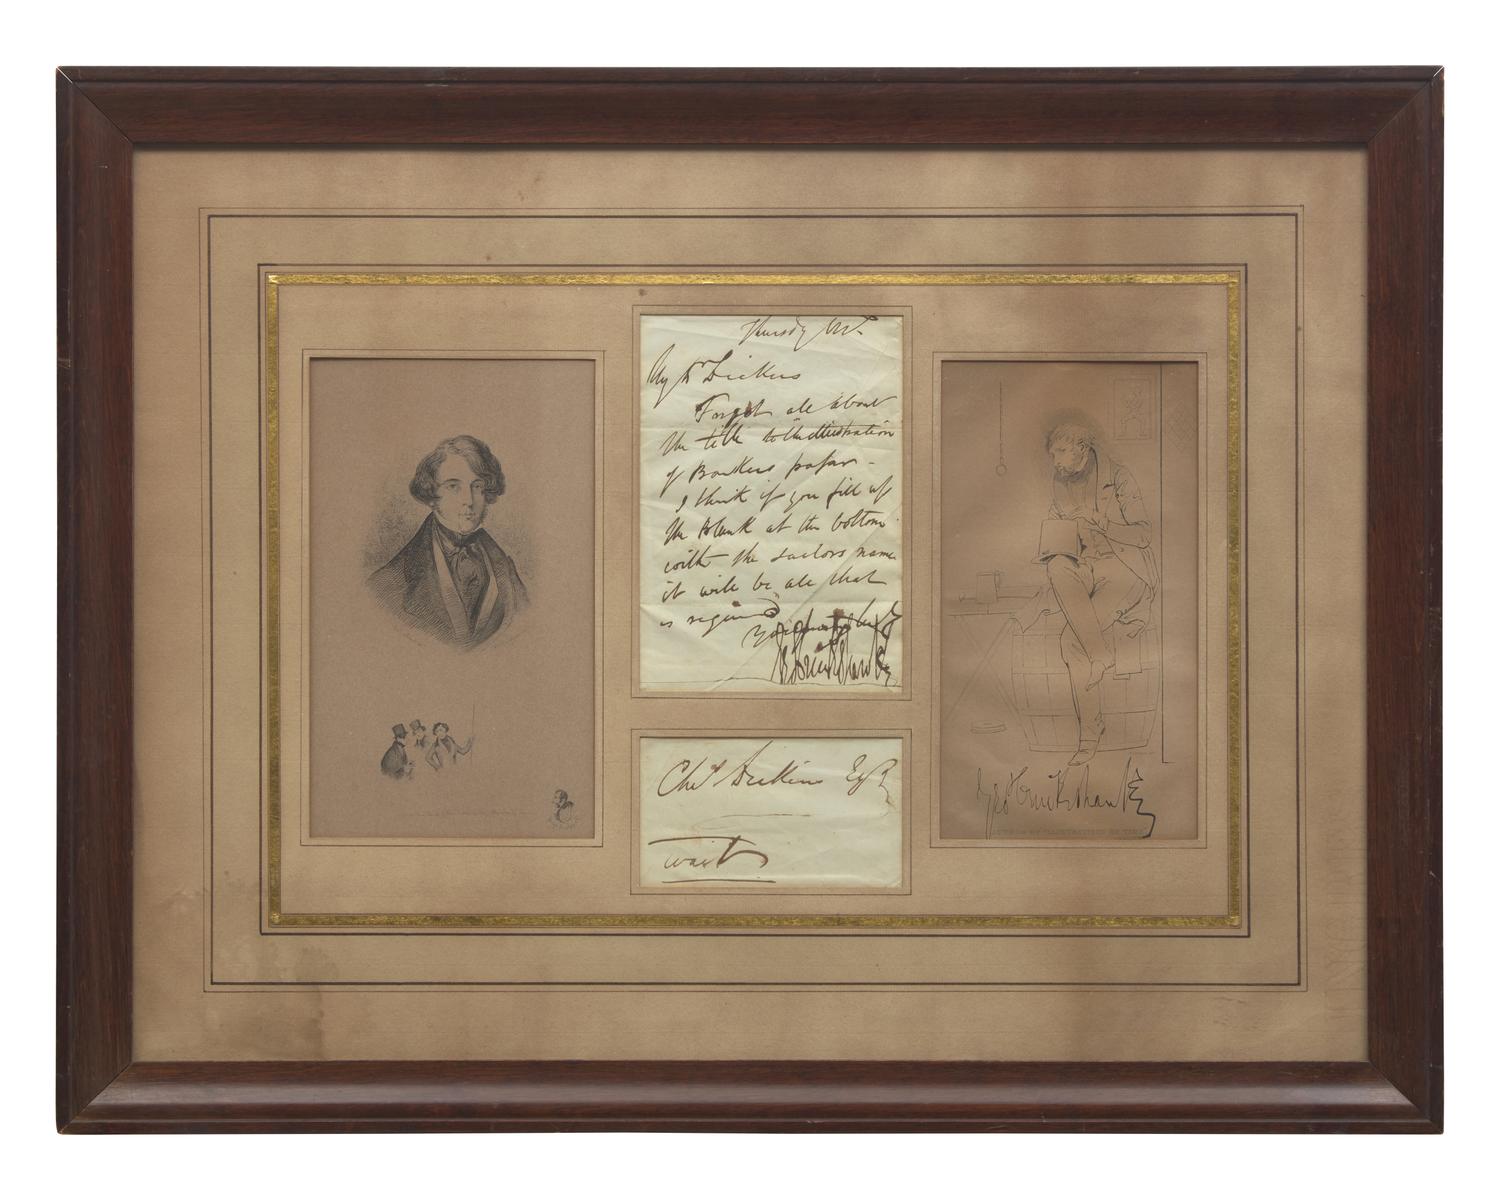 Thursday
My Dr Dickens
Forgot all about
the title to the illustration
of Barkers paper –
I think if you fill up
the blank at the bottom
with the sailors name
it will be all that
is required
Yours
Geo Cruikshank
Chas Dickens Esqr
wait
Geo Cruikshank